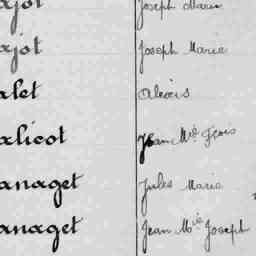 ajot Joseph Marie
ajot Joseph Marie
alet Alexis
alicot Jean Mie Frçois
anaget Jules Marie
anaget Jean Mie Joseph